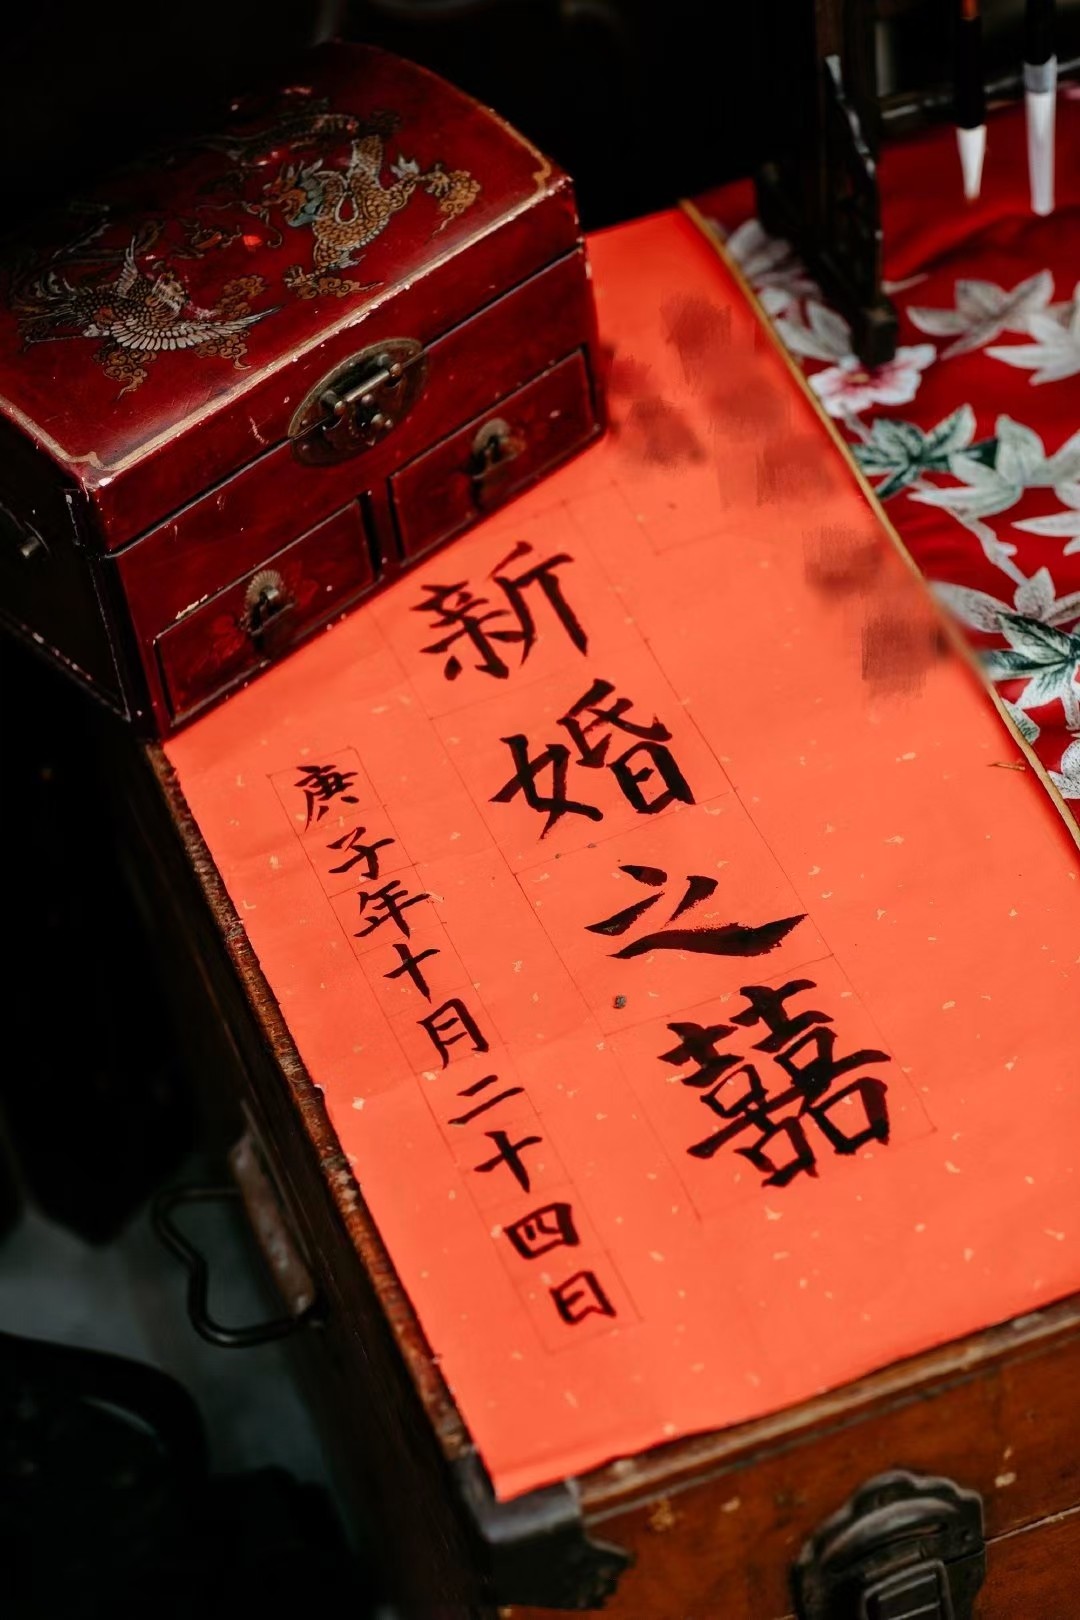 新婚之囍
庚子年十月二十四日